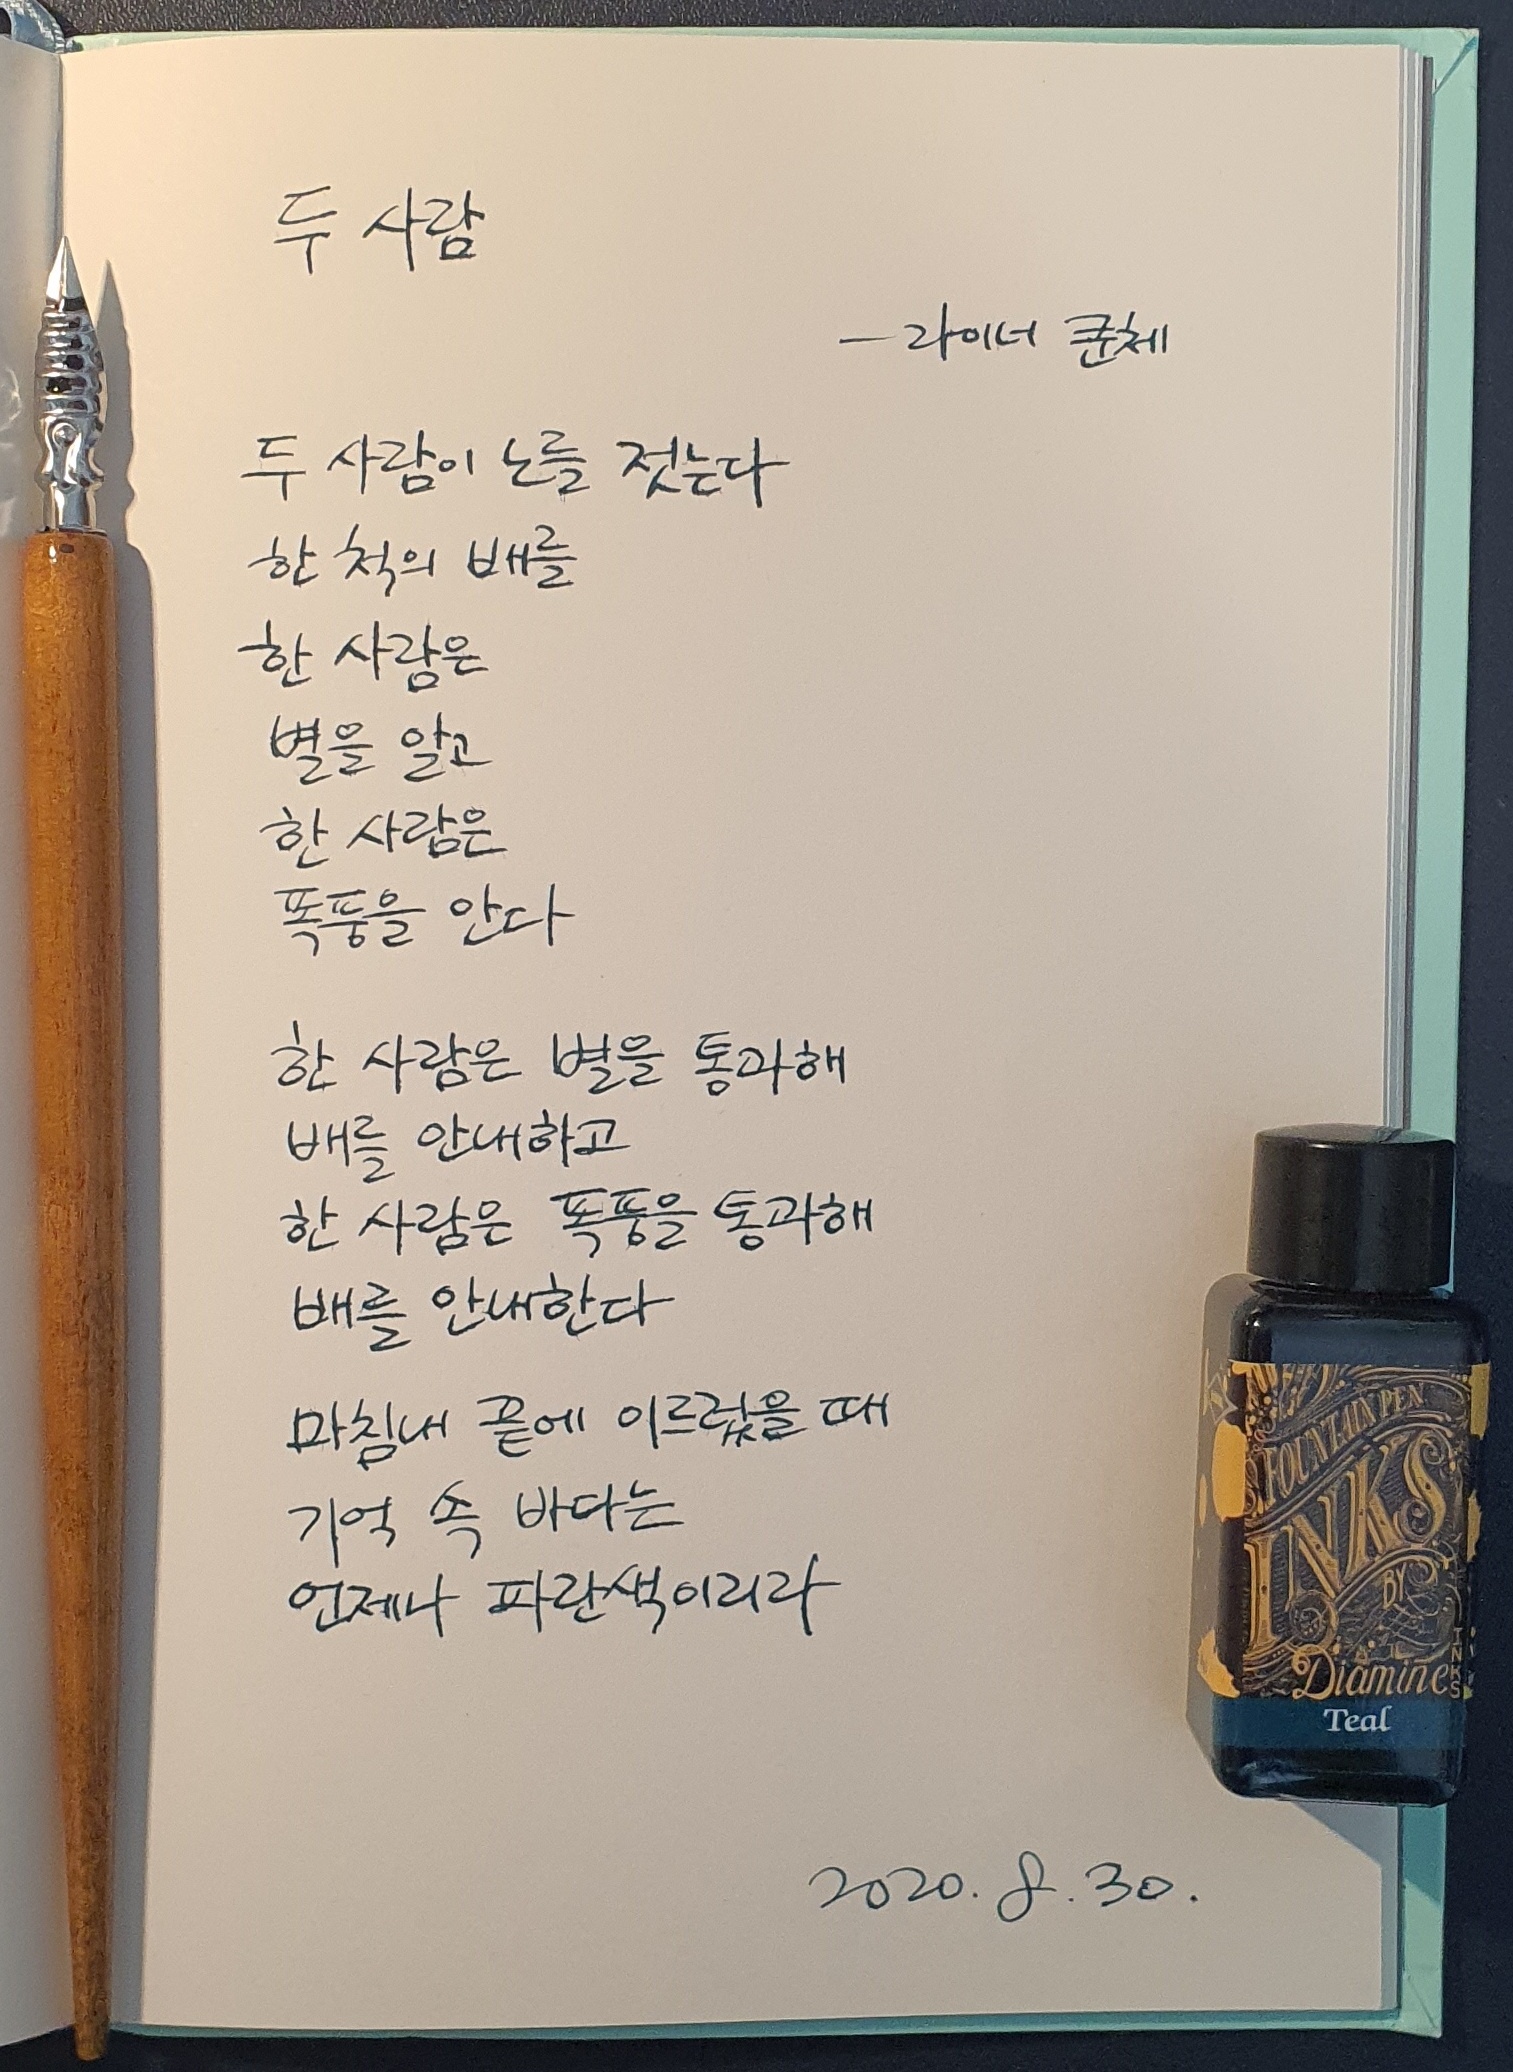 두 사람
— 라이너 쿤체
두 사람이 노를 젓는다
한 척의 배를
한 사람은
별을 알고
한 사람은
폭풍을 안다
한 사람은 별을 통과해
배를 안내하고
한 사람은 폭풍을 통과해
배를 안내한다
마침내 끝에 이르렀을 때
기억 속 바다는
언제나 파란색이리라
2020. 8. 30.
FOUNTAIN PEN
INKS
BY
Diamine
Teal
INKS